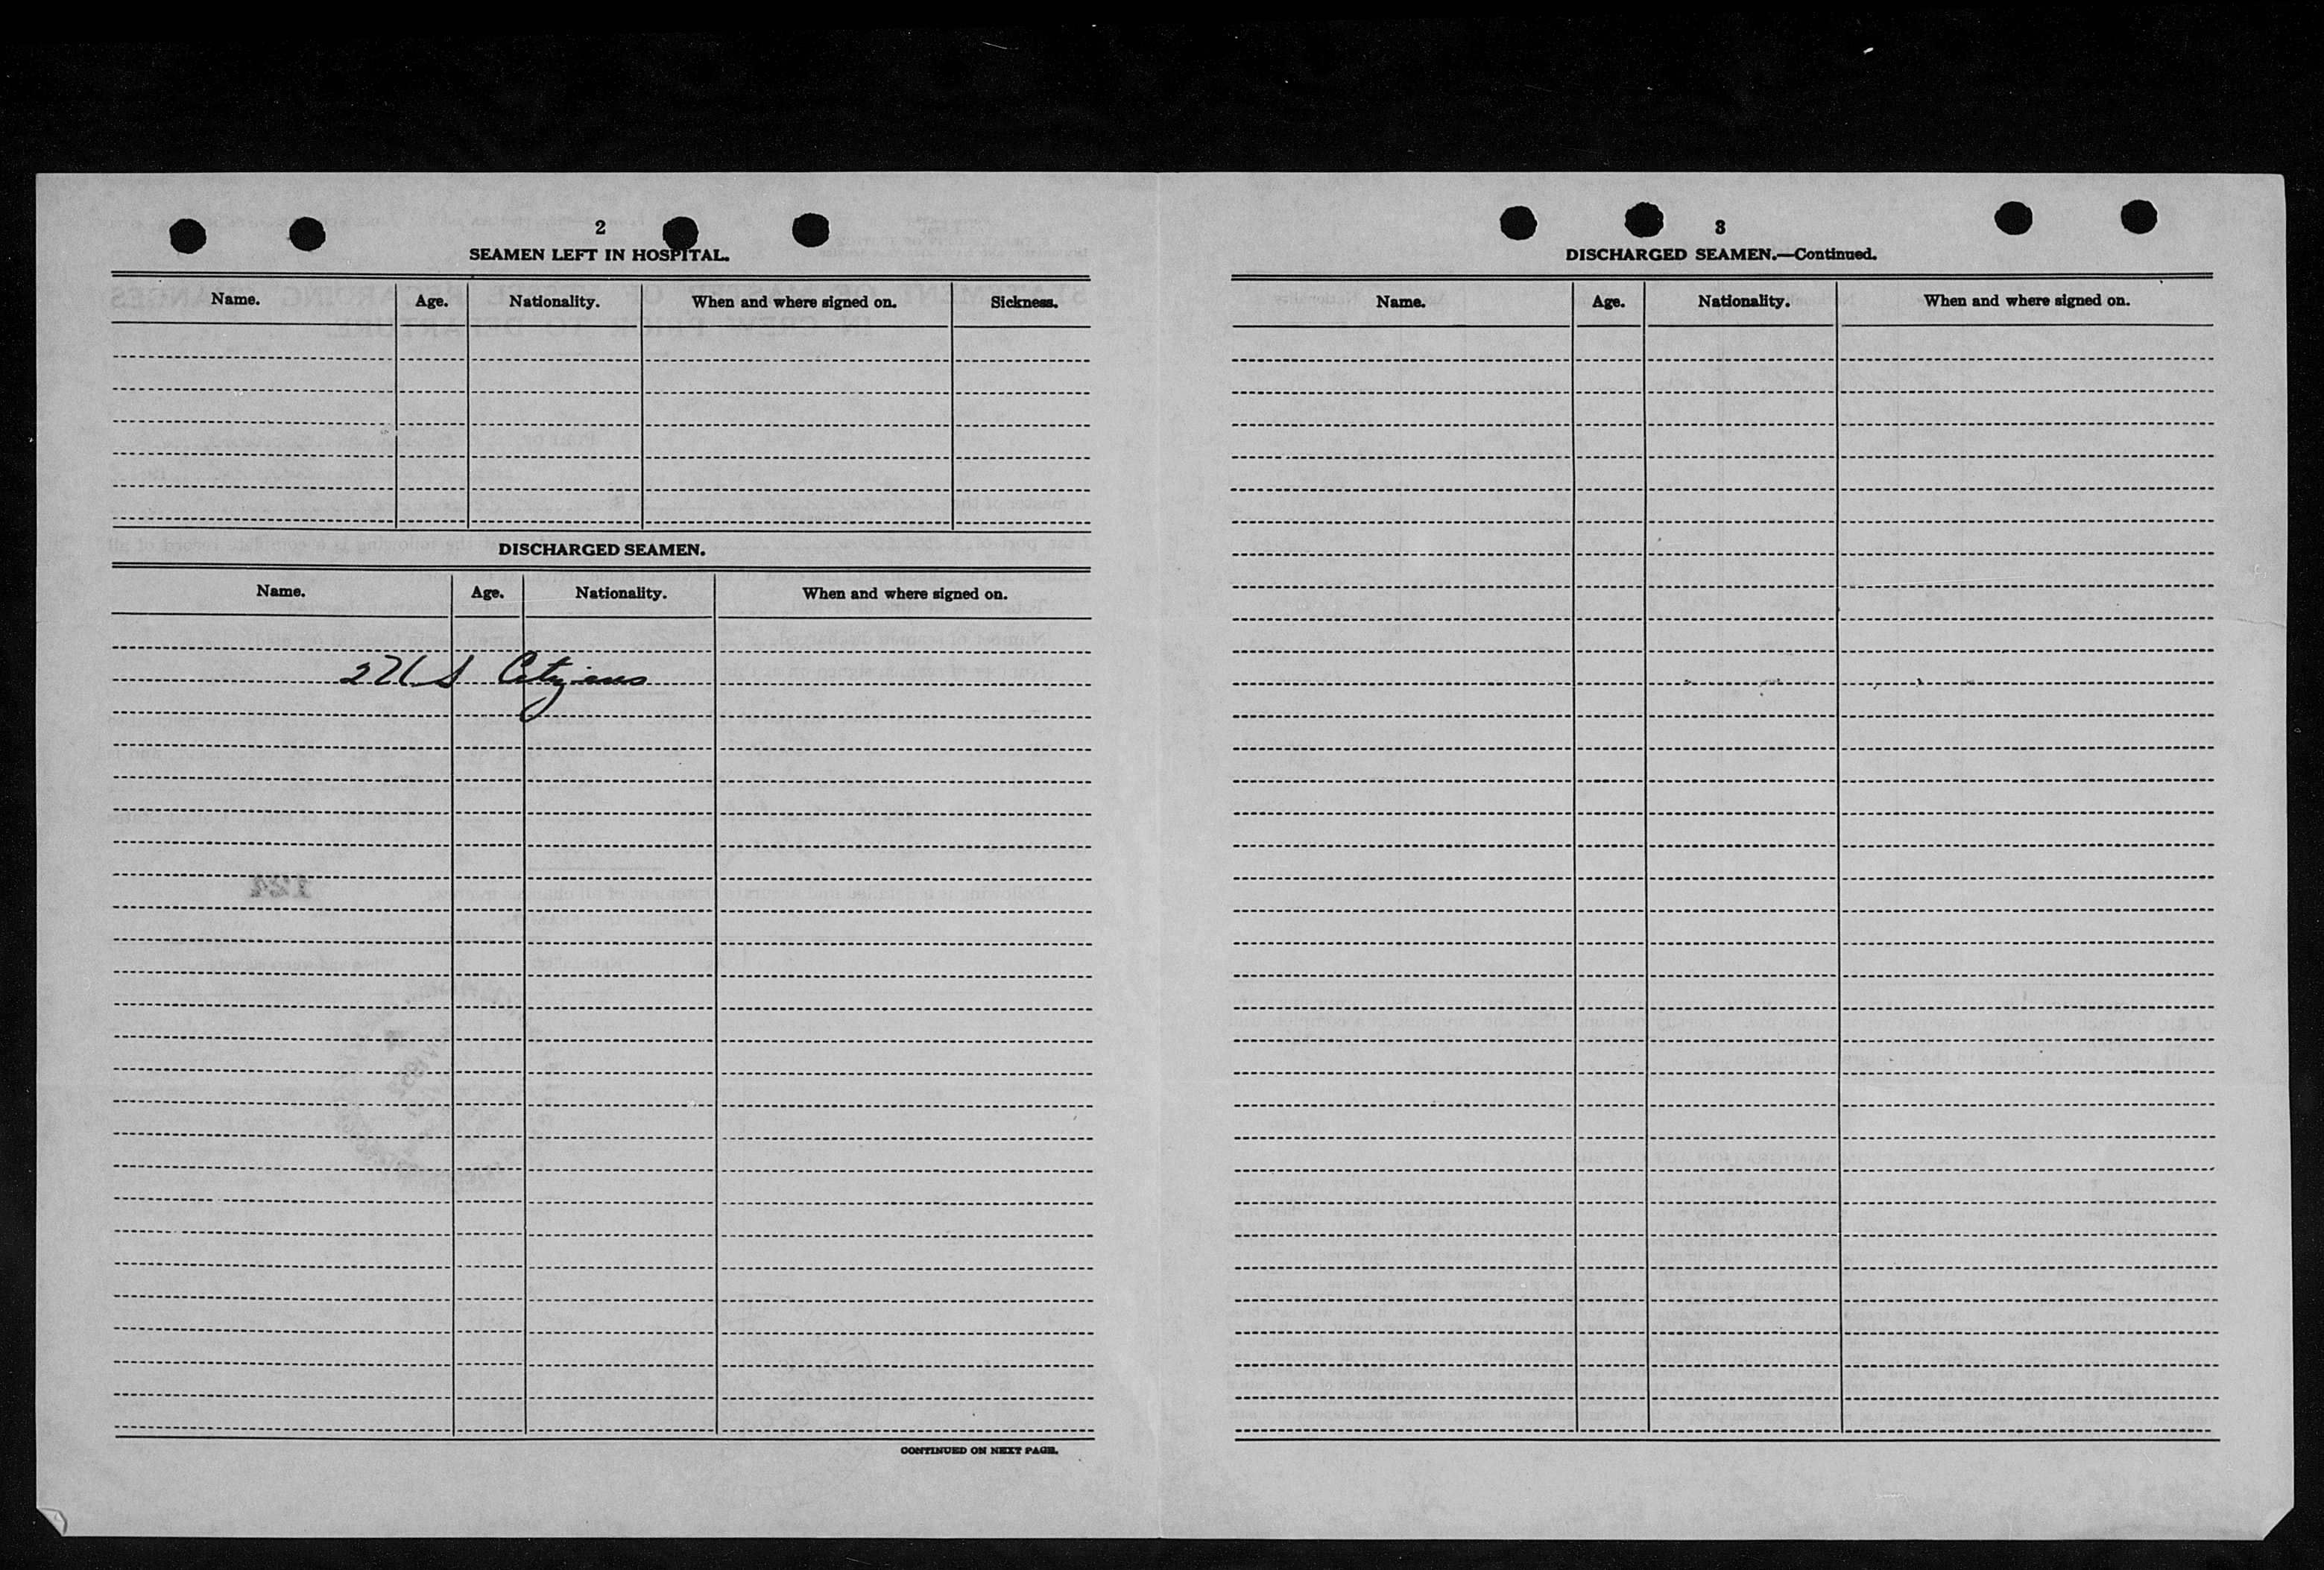 2
SEAMEN LEFT IN HOSPITAL.
Name. Age. Nationality. When and where signed on. Sickness.
DISCHARGED SEAMEN.
Name. Age. Nationality. When and where signed on.
2 U S Citizens
CONTINUED ON NEXT PAGE.
3
DISCHARGED SEAMEN.—Continued.
Name. Age. Nationality. When and where signed on.